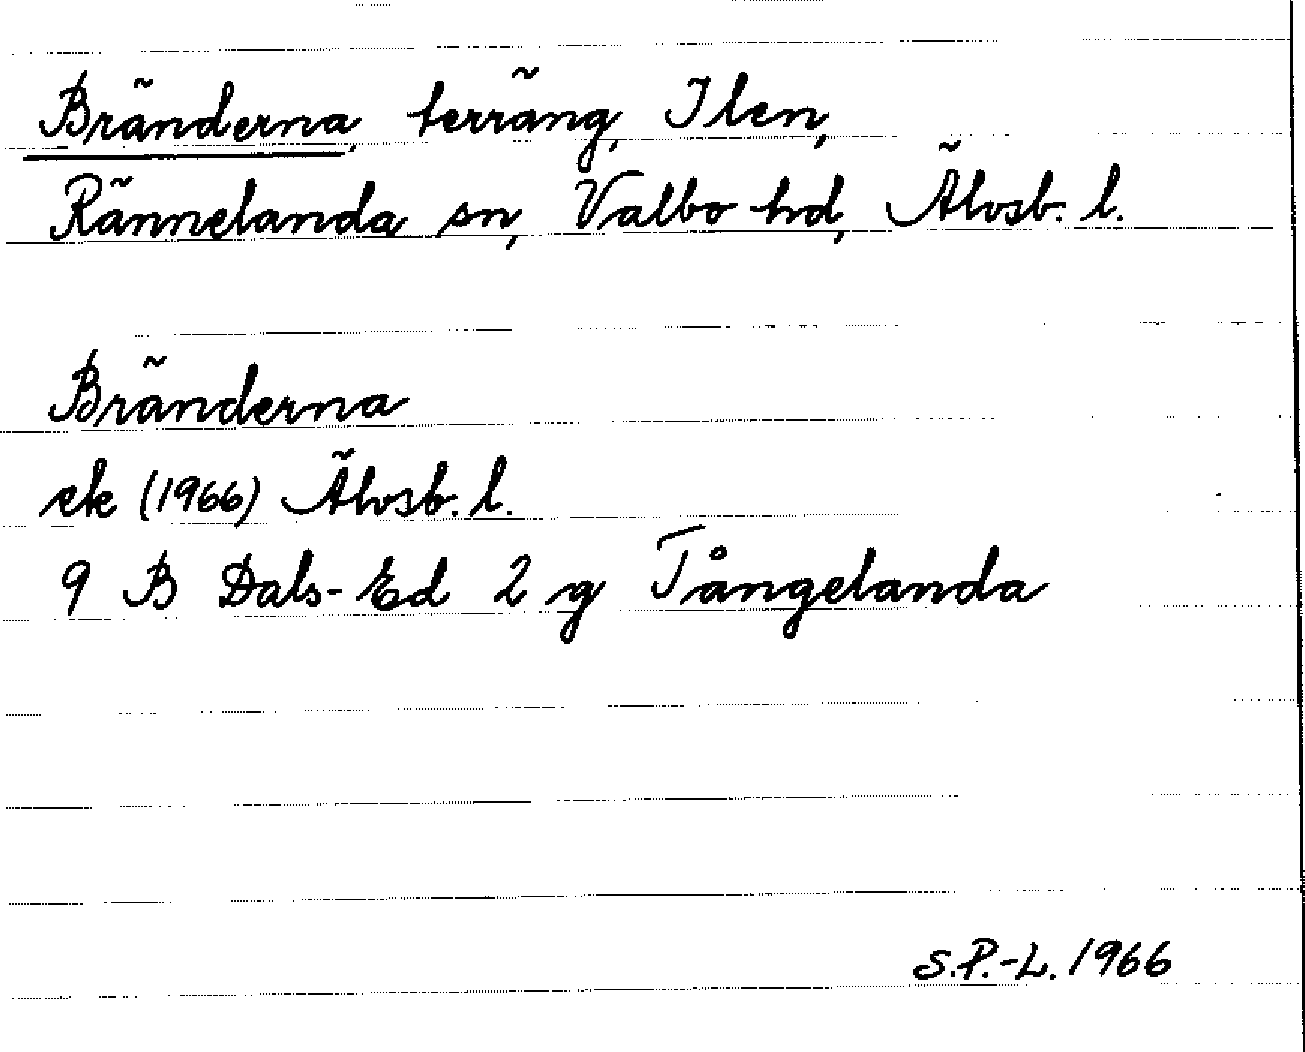 Bränderna, terräng, Ilen,
Rännelanda sn, Valbo hd, Älvsb. l.
Bränderna
ek (1966) Älvsb. l.
9 B Dals-Ed 2 g Tångelanda
S.P.-L. 1966